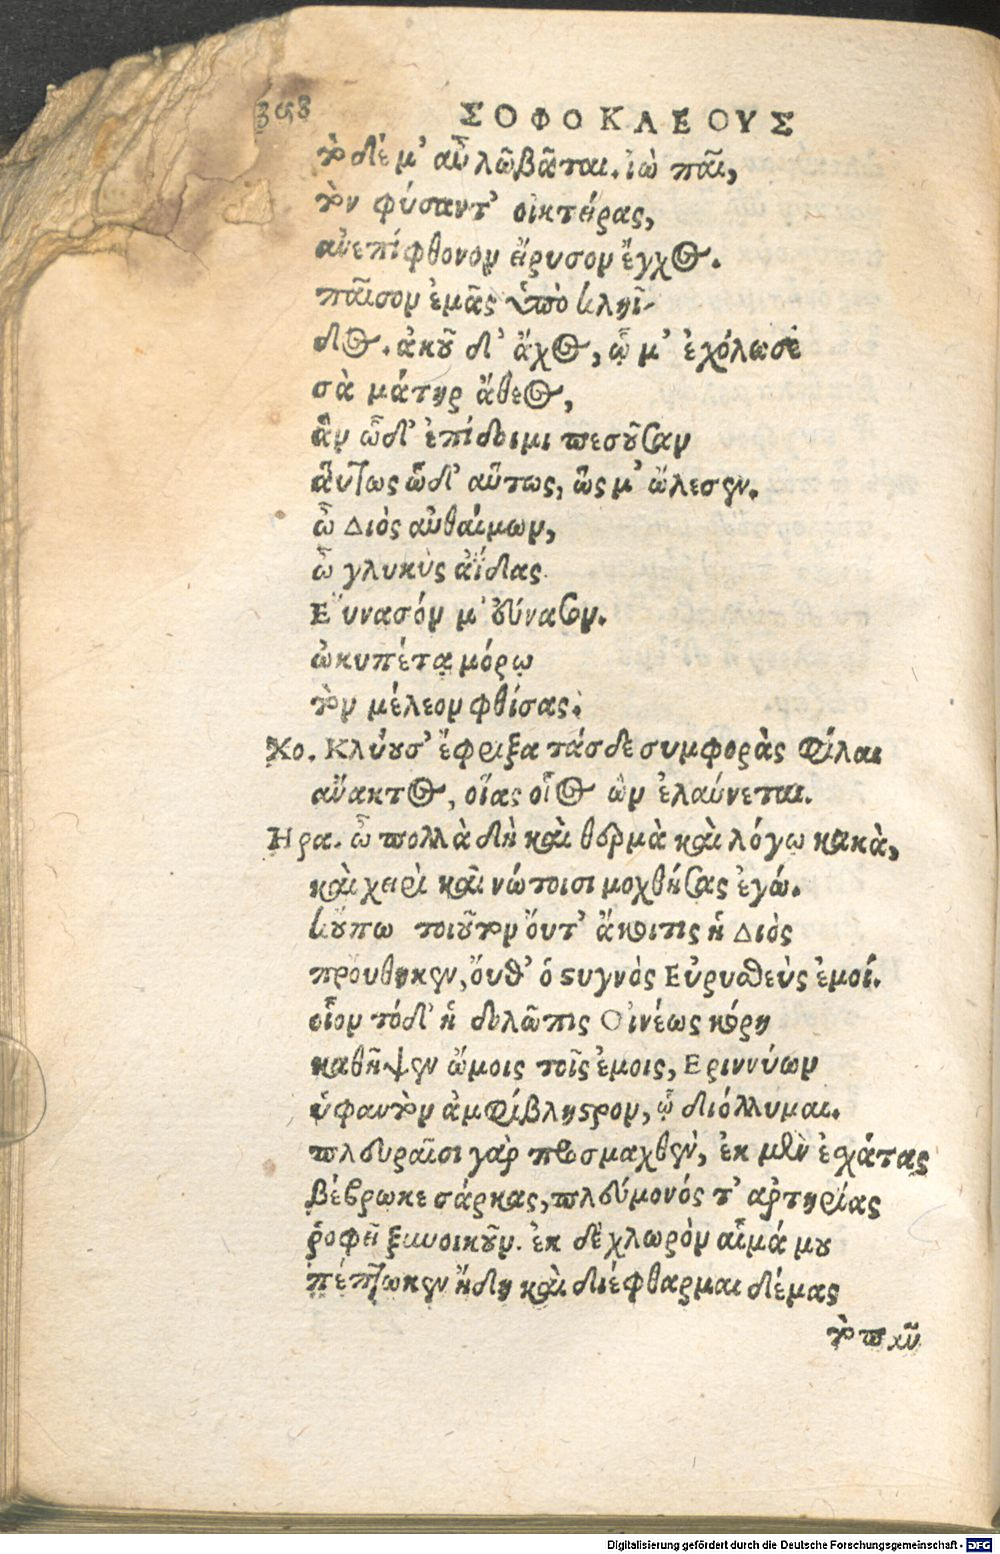 358
ΣΟΦΟΚΛΕΟΥΣ
τὸ δέ μ' αὖ λωβᾶται. ἰὼ παῖ,
τὸν φύσαντ' οἰκτείρας,
ἀνεπίφθονον εἴρυσον ἔγχος.
παῖσον ἐμᾶς ὑπὸ κληῖ-
δος. ἀκοῦ δ' ἄχος, ᾧ μ' ἐχόλωσε
σὰ μάτηρ ἄθεος,
ἃν ὧδ' ἐπίδοιμι πεσοῦσαν
αὔτως ὧδ' αὔτως, ὥς μ' ὤλεσεν.
ὦ Διὸς αὐθαίμων,
ὦ γλυκὺς ἀΐδας
Εὔνασόν μ' εὔνασον.
ὠκυπέτᾳ μόρῳ
τὸν μέλεον φθίσας.
Χο. Κλύουσ' ἔφριξα τάσδε συμφορὰς φίλαι
ἄνακτος, οἵας οἷος ὢν ἐλαύνεται.
Ηρα. ὦ πολλὰ δὴ καὶ θερμὰ καὶ λόγῳ κακὰ,
καὶ χειρὶ καὶ νώτοισι μοχθήσας ἐγώ.
κούπω τοιοῦτον ὄυτ' ἄκοιτις ἡ Διὸς
προὔθηκεν, ὄυθ' ὁ στυγνὸς Εὐρυσθεὺς ἐμοί.
οἷον τόδ' ἡ δολῶπις Οἰνέως κόρη
καθῆψεν ὤμοις τοῖς ἐμοις, Εριννύων
ὑφαντὸν ἀμφίβληστρον, ᾧ διόλλυμαι.
πλευραῖσι γὰρ προσμαχθὲν, ἐκ μὲν ἐσχάτας
βέβρωκε σάρκας, πλεύμονός τ' ἀρτηρίας
ῥοφεῖ ξυνοικοῦν. ἐκ δὲ χλωρὸν αἷμά μου
πέπτωκεν ἤδη καὶ διέφθαρμαι δέμας
τὸ πᾶν